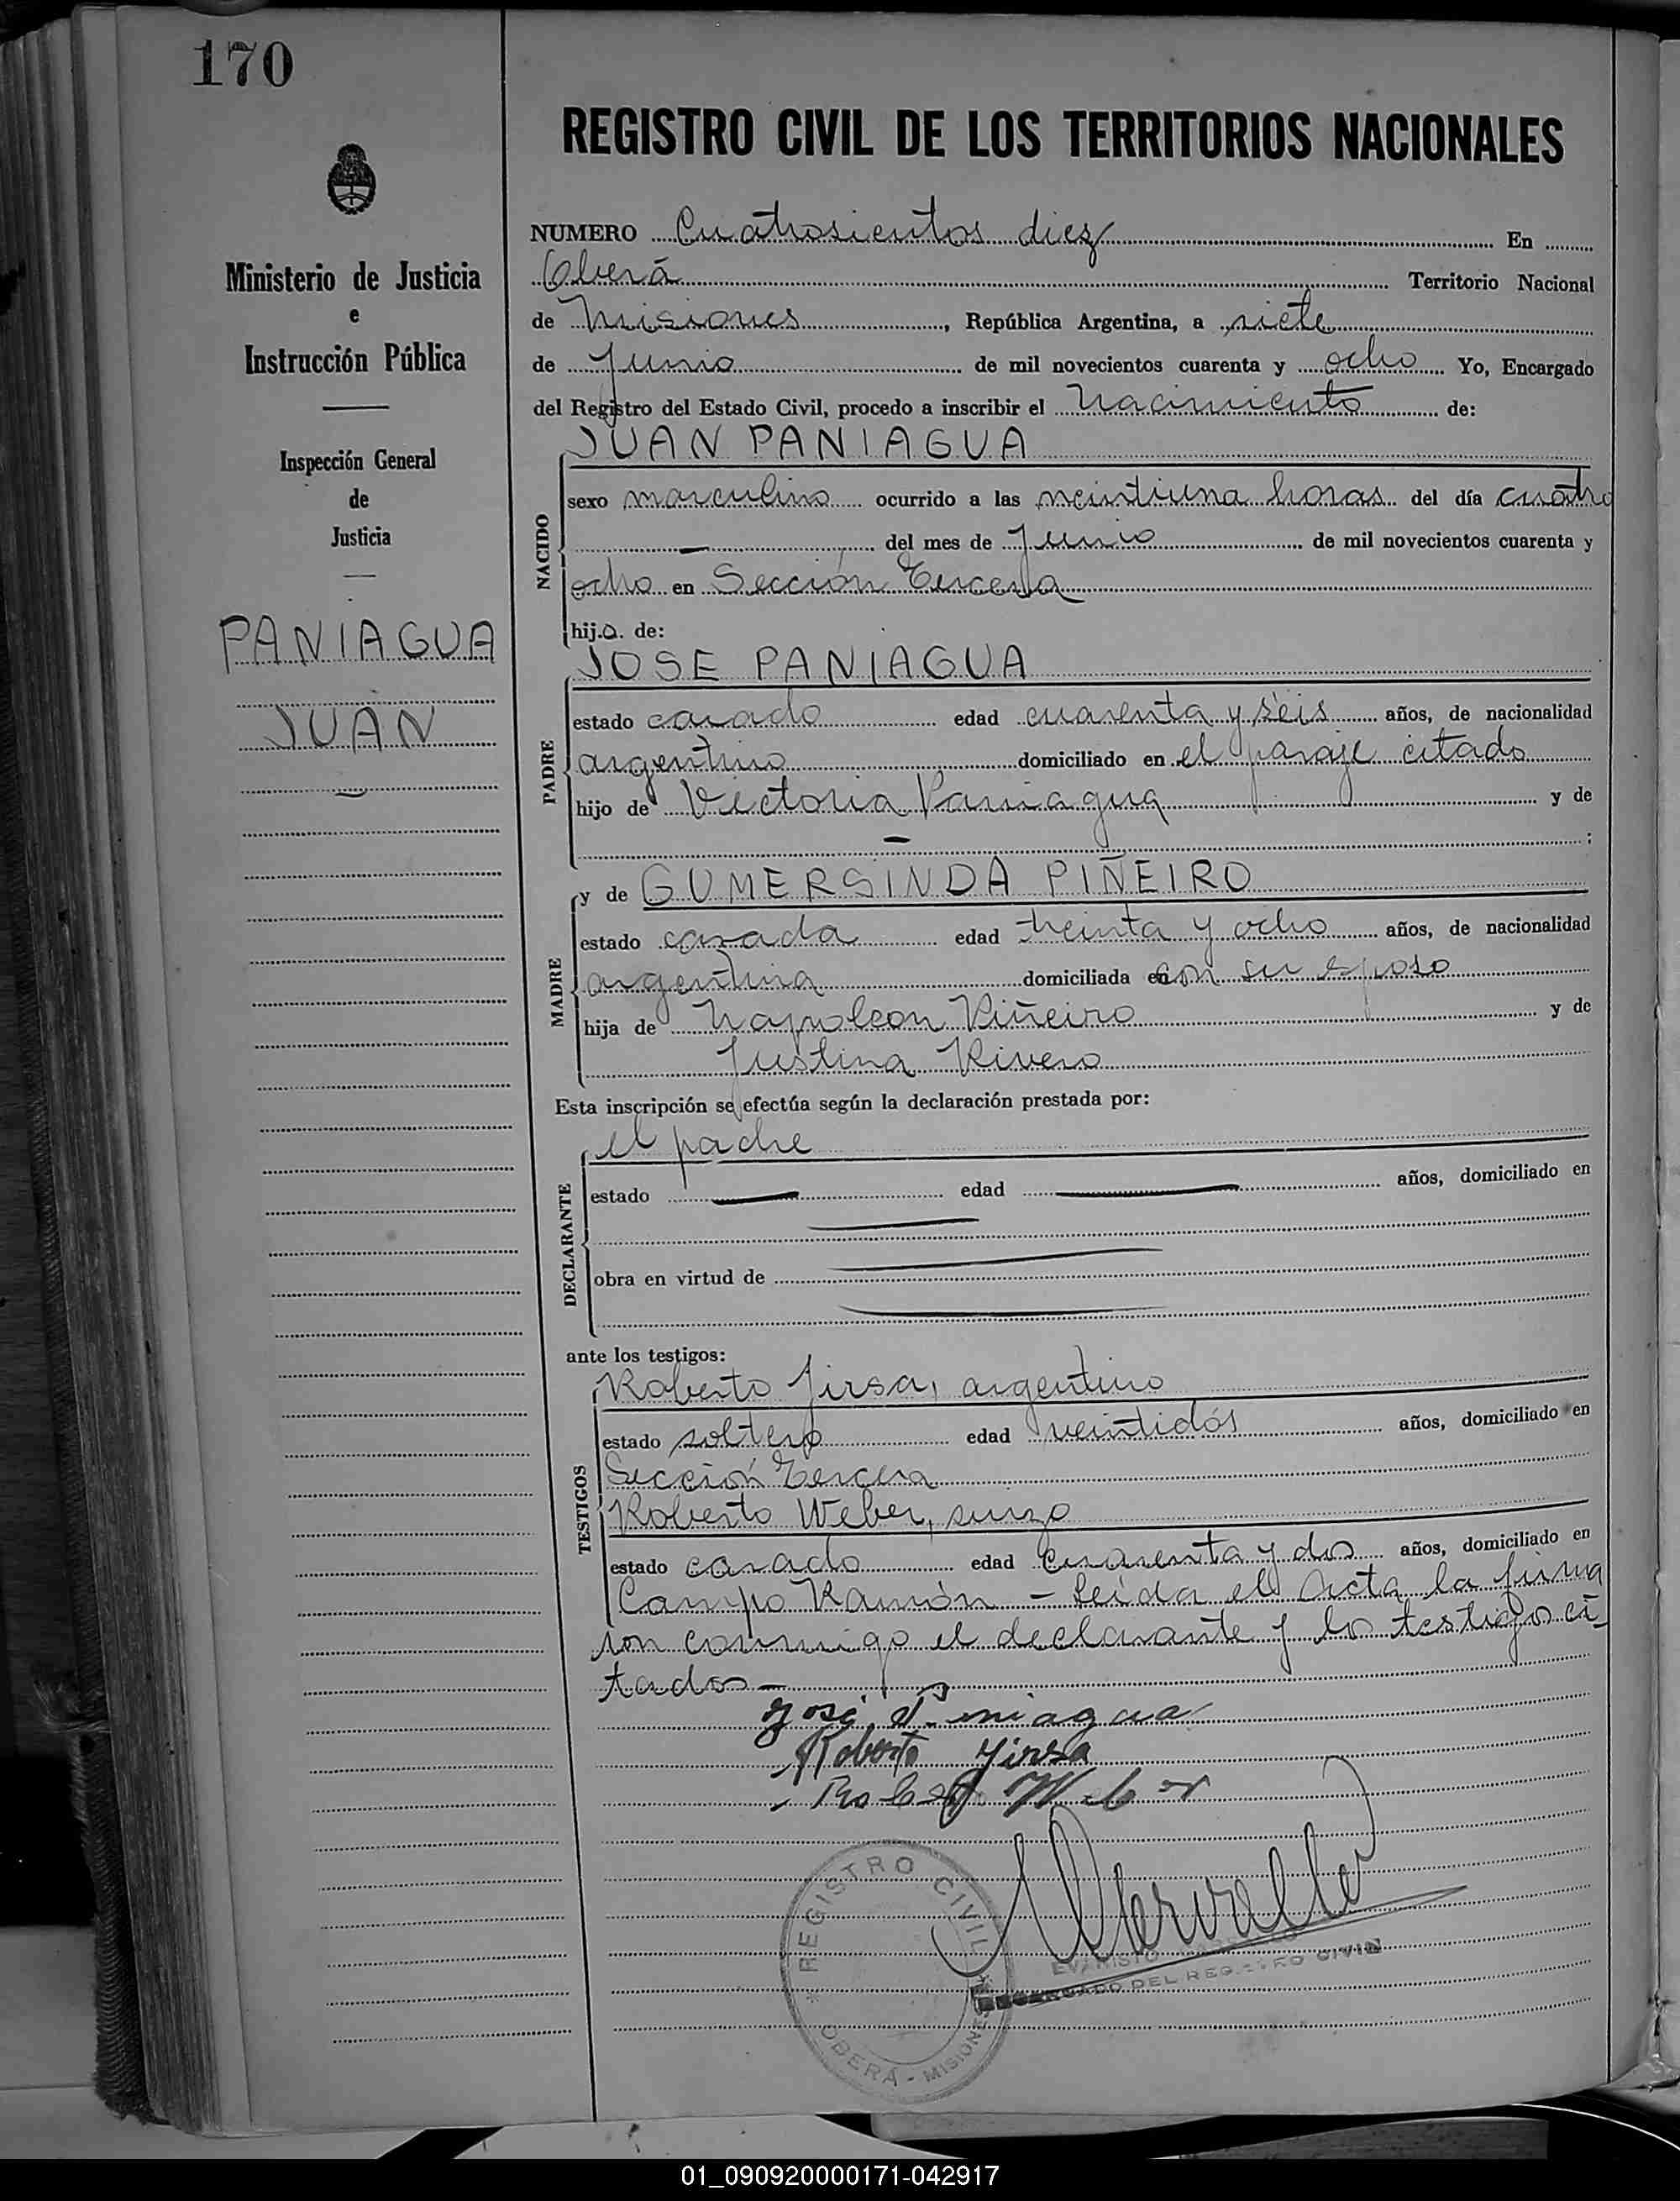 170
REGISTRO CIVIL DE LOS TERRITORIOS NACIONALES
Ministerio de Justicia
e
Instrucción Pública
Inspección General
de
Justicia
PANIAGUA
JUAN
NUMERO Cuatrosientos diez En
Oberá Territorio Nacional
de Misiones, República Argentina, a siete
de Junio de mil novecientos cuarenta y ocho Yo, Encargado
del Registro del Estado Civil, procedo a inscribir el Nacimiento de:
NACIDO
JUAN PANIAGUA
sexo masculino ocurrido a las veintiuna horas del día cuatro
— del mes de Junio de mil novecientos cuarenta y
ocho en Sección Tercera
hijo de:
PADRE
JOSE PANIAGUA
estado casado edad cuarenta y seis años, de nacionalidad
argentino domiciliado en el paraje citado
hijo de Victoria Paniagua y de
— ;
MADRE
y de GUMERSINDA PIÑEIRO
estado casada edad treinta y ocho años, de nacionalidad
argentina domiciliada en con su esposo
hija de Napoleon Piñeiro y de
Justina Rivero
Esta inscripción se efectúa según la declaración prestada por:
DECLARANTE
el padre
estado — edad — años, domiciliado en
obra en virtud de
ante los testigos:
TESTIGOS
Roberto Jirsa, argentino
estado soltero edad veintidós años, domiciliado en
Sección Tercera
Roberto Weber, suizo
estado casado edad cuarenta y dos años, domiciliado en
Campo Ramón — Leida el Acta la firma
ron conmigo el declarante y los testigos ci-
tados —
José Paniagua
Roberto Jirsa
Robert Weber
REGISTRO CIVIL
OBERÁ - MISIONES
EVARISTO
ENCARGADO DEL REGISTRO CIVIL
01_090920000171-042917